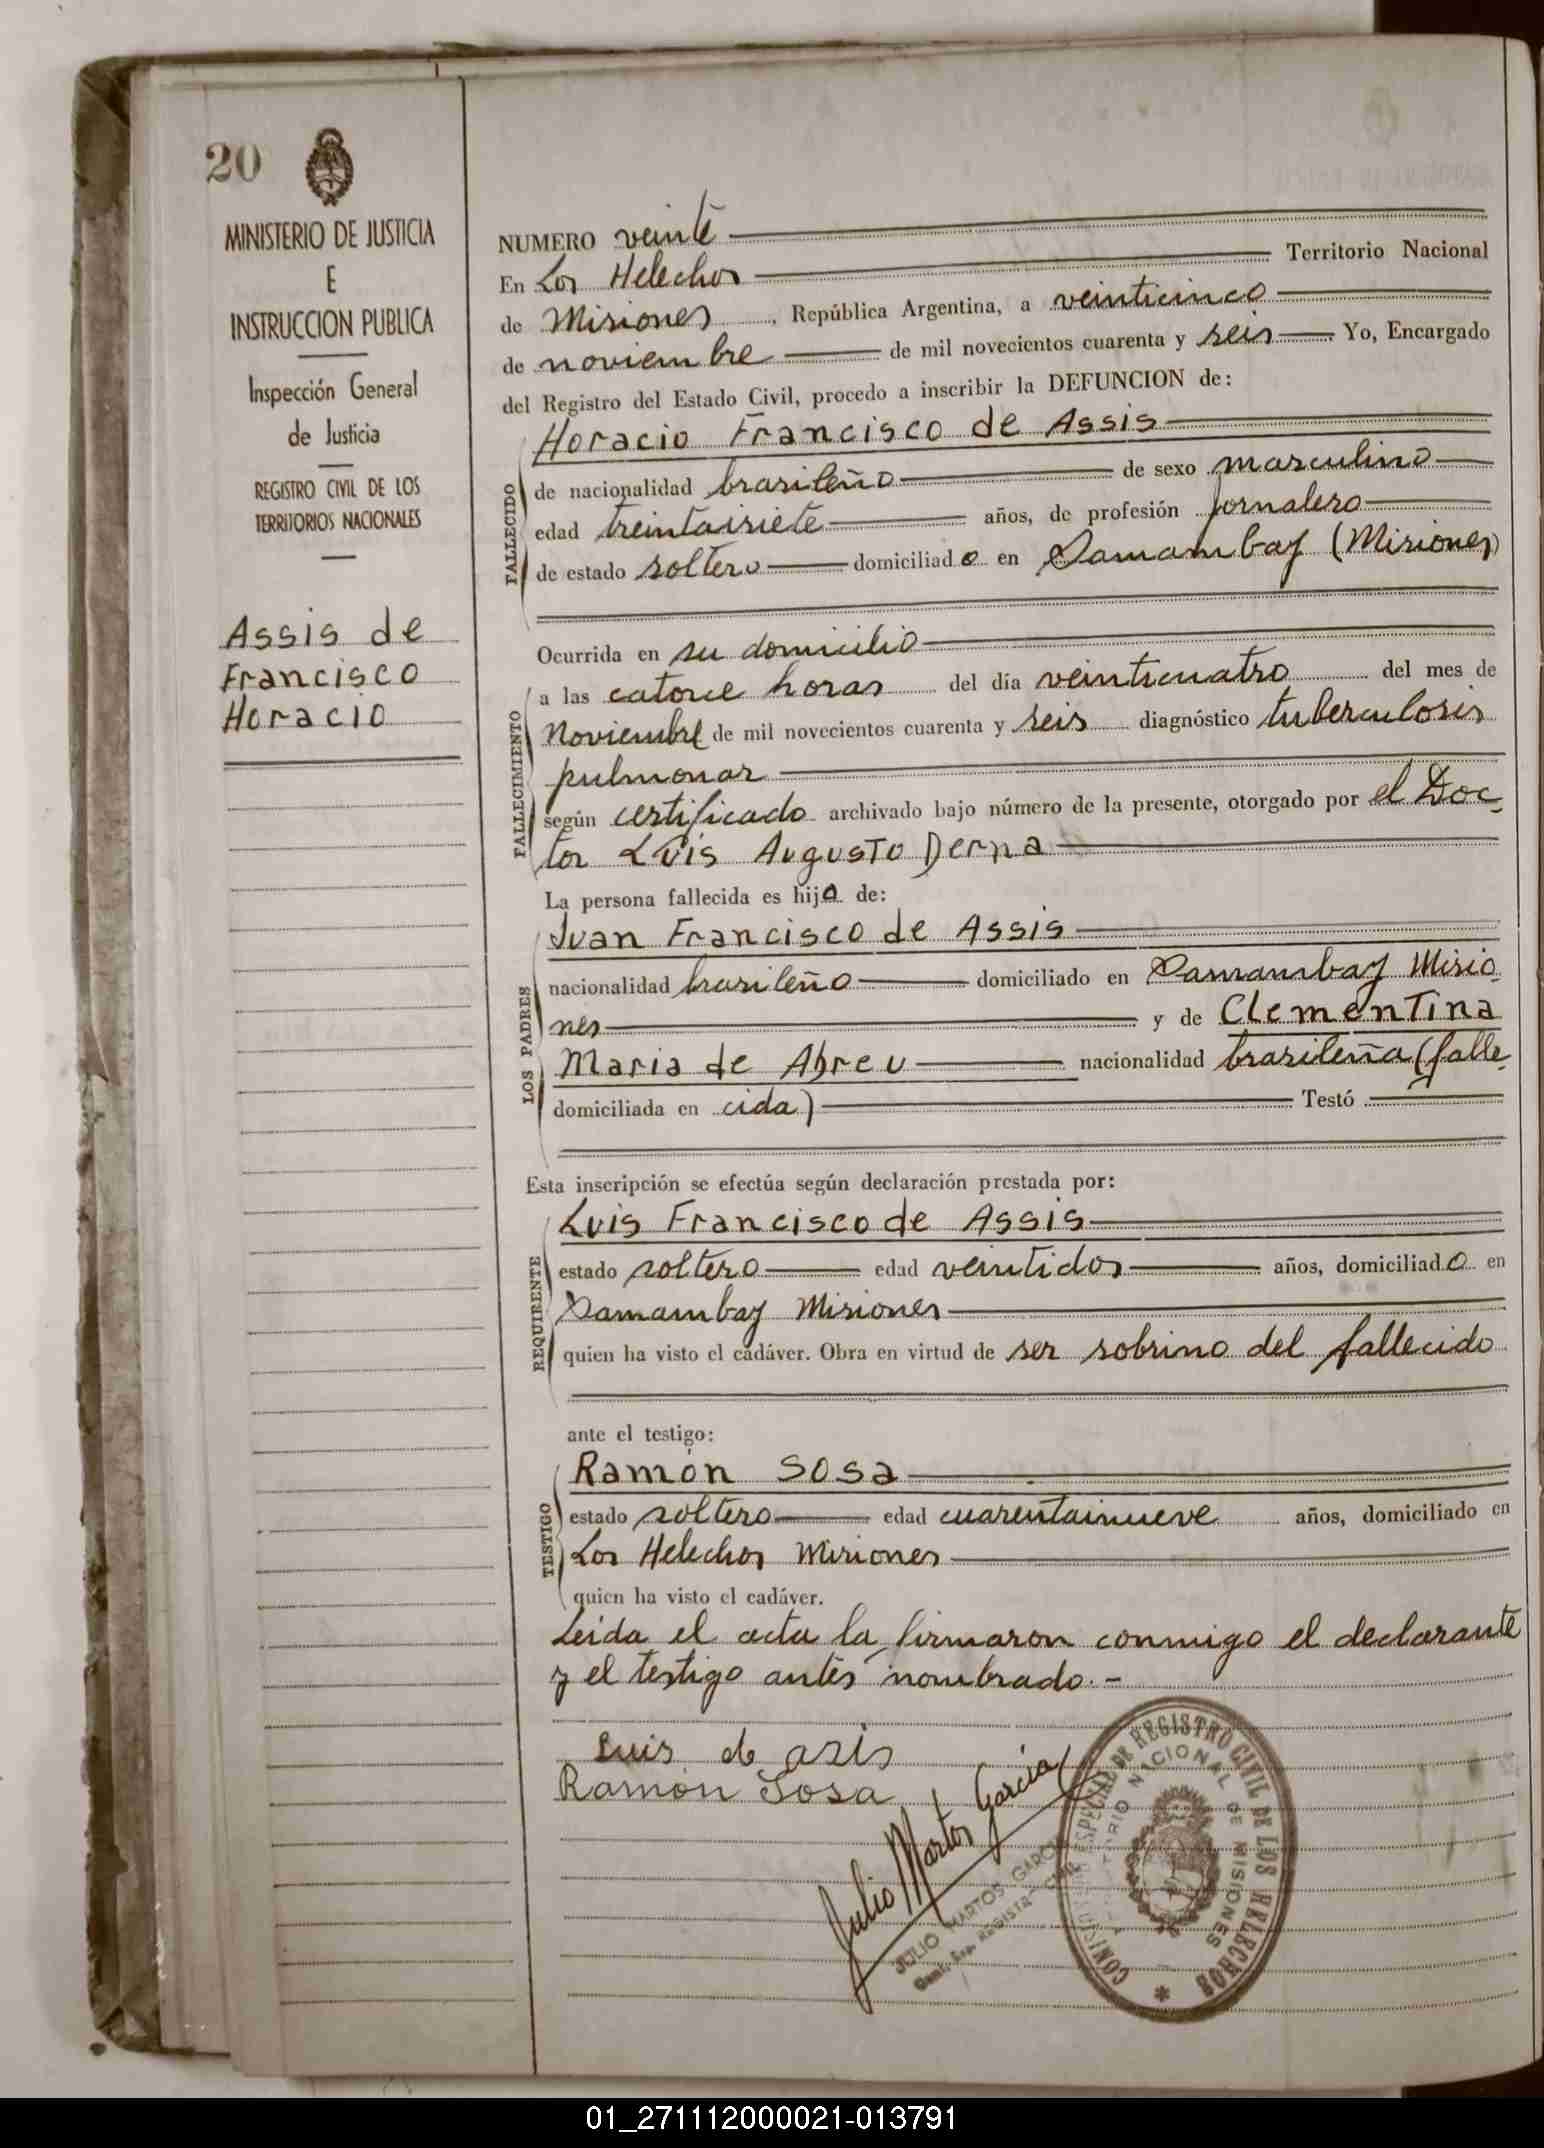 20
MINISTERIO DE JUSTICIA
E
INSTRUCCION PUBLICA
Inspección General
de Justicia
REGISTRO CIVIL DE LOS
TERRITORIOS NACIONALES
Assis de
Francisco
Horacio
NUMERO veinte
En Los Helechos Territorio Nacional
de Misiones, República Argentina, a veinticinco
de noviembre de mil novecientos cuarenta y seis Yo, Encargado
del Registro del Estado Civil, procedo a inscribir la DEFUNCION de:
FALLECIDO
Horacio Francisco de Assis
de nacionalidad brasileño de sexo masculino
edad treintaisiete años, de profesión jornalero
de estado soltero domiciliado en Samambay (Misiones)
Ocurrida en su domicilio
FALLECIMIENTO
a las catorce horas del día veinticuatro del mes de
Noviembre de mil novecientos cuarenta y seis diagnóstico tuberculosis
pulmonar
según certificado archivado bajo número de la presente, otorgado por el Doc-
tor Luis Augusto Derna
La persona fallecida es hijo de:
LOS PADRES
Juan Francisco de Assis
nacionalidad brasileño domiciliado en Samambay Misio
nes y de Clementina
Maria de Abreu nacionalidad brasileña (falle-
domiciliada en cida) Testó
Esta inscripción se efectúa según declaración prestada por:
REQUIRENTE
Luis Francisco de Assis
estado soltero edad veintidos años, domiciliado en
Samambay Misiones
quien ha visto el cadáver. Obra en virtud de ser sobrino del fallecido
ante el testigo:
TESTIGO
Ramón Sosa
estado soltero edad cuarentainueve años, domiciliado en
Los Helechos Misiones
quien ha visto el cadáver.
Leída el acta la firmaron conmigo el declarante
y el testigo antes nombrado.-
Luis de asis
Ramón Sosa
Julio Martos García
JULIO MARTOS GARCIA
REGISTRO CIVIL DE LOS HELECHOS
TERRITORIO NACIONAL DE MISIONES
01_271112000021-013791